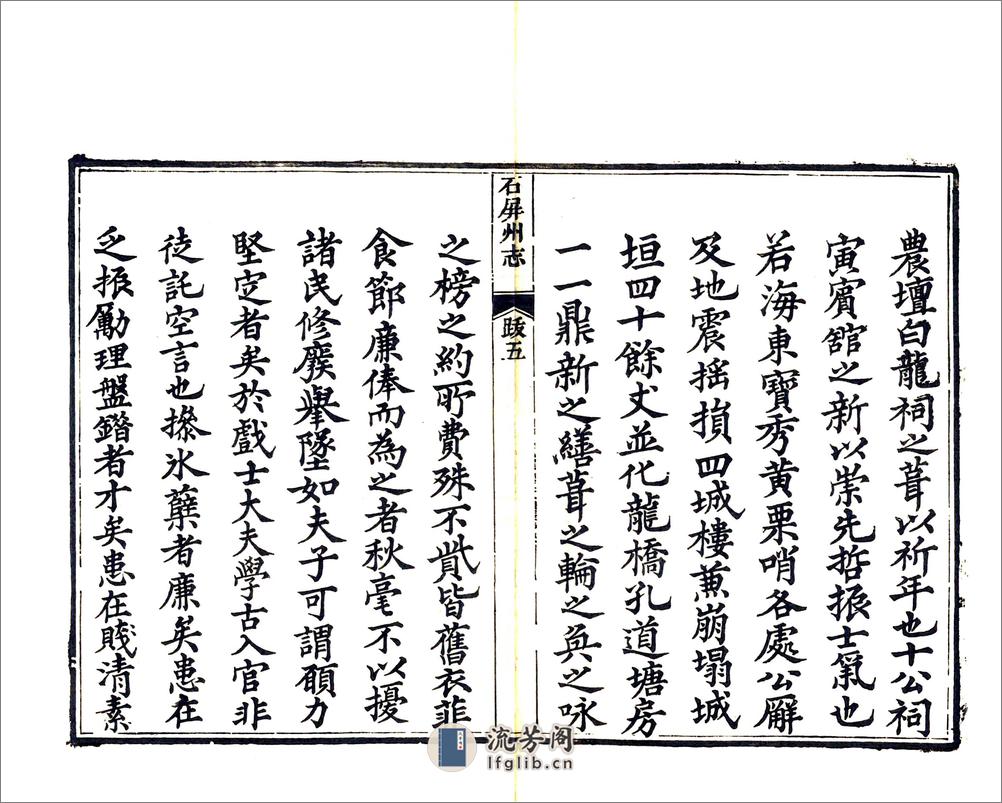 農壇白龍祠之葺以祈年也十公祠
寅賓舘之新以崇先哲振士氣也
若海東寶秀黄栗哨各處公廨
及地震揺損四城樓蕪崩塌城
垣四十餘丈並化龍橋孔道塘房
一一鼎新之繕葺之輪之奐之咏
石屏州志
跋五
之榜之約所費殊不貲皆舊衣菲
食節廉俸而為之者秋毫不以擾
諸民修廢舉墜如夫子可謂願力
堅定者矣於戲士大夫學古入官非
徒託空言也撡氷蘗者廉矣患在
乏振勵理盤錯者才矣患在賤清素
流芳阁
lfglib.cn